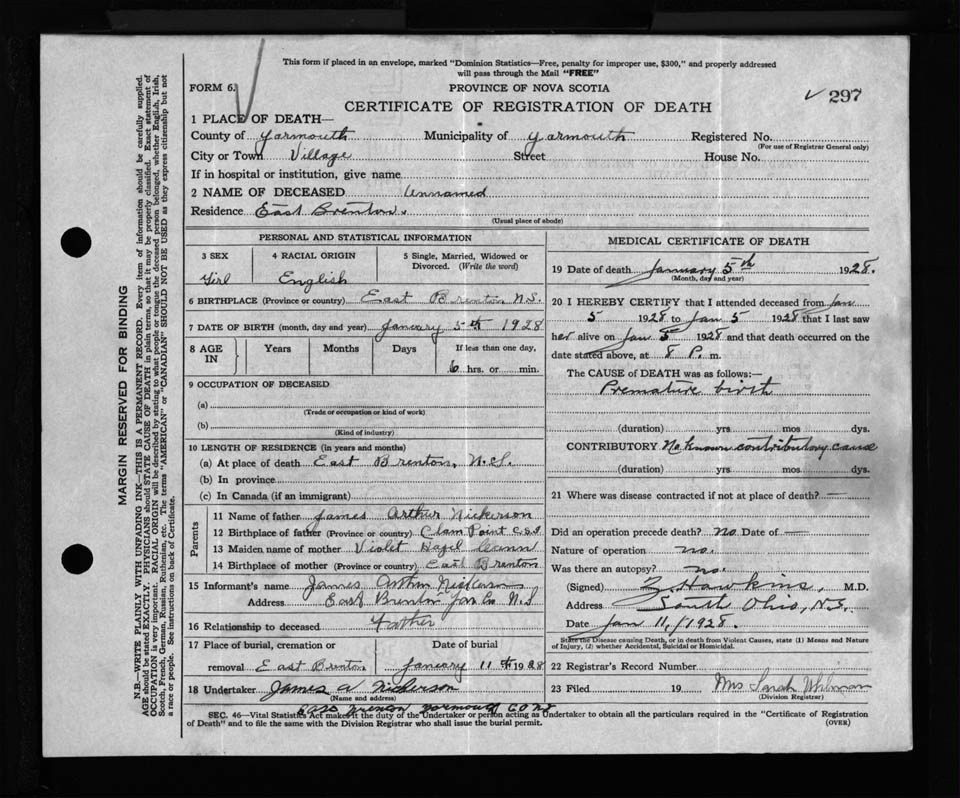 This form if placed in an envelope, marked "Dominion Statistics—Free, penalty for improper use, $300," and properly addressed
will pass through the Mail "FREE"
FORM 6.
PROVINCE OF NOVA SCOTIA
297
CERTIFICATE OF REGISTRATION OF DEATH
1 PLACE OF DEATH—
County of Yarmouth Municipality of Yarmouth Registered No.
(For use of Registrar General only)
City or Town Village Street House No.
If in hospital or institution, give name
2 NAME OF DECEASED Unnamed
Residence East Brenton.
(Usual place of abode)
PERSONAL AND STATISTICAL INFORMATION
3 SEX 4 RACIAL ORIGIN 5 Single, Married, Widowed or
Divorced. (Write the word)
Girl English
6 BIRTHPLACE (Province or country) East Brenton N.S.
7 DATE OF BIRTH (month, day and year) January 5th 1928
8 AGE IN Years Months Days If less than one day,
6 hrs. or min.
9 OCCUPATION OF DECEASED
(a)
(Trade or occupation or kind of work)
(b)
(Kind of industry)
10 LENGTH OF RESIDENCE (in years and months)
(a) At place of death East Brenton, N.S.
(b) In province
(c) In Canada (if an immigrant)
Parents
11 Name of father James Arthur Nickerson
12 Birthplace of father (Province or country) Clam Point C.S.I
13 Maiden name of mother Violet Hazel
14 Birthplace of mother (Province or country) East Brenton
15 Informant's name James Arthur Nickerson
Address East Brenton Yar Co N.S
16 Relationship to deceased Father
17 Place of burial, cremation or Date of burial
removal East Brenton January 11th 1928
18 Undertaker James A Nickerson
(Name and address)
East Brenton Yarmouth CO NS
MEDICAL CERTIFICATE OF DEATH
19 Date of death January 5th 1928.
(Month, day and year)
20 I HEREBY CERTIFY that I attended deceased from Jan
5 1928 to Jan 5 1928 that I last saw
her alive on Jan 5 1928 and that death occurred on the
date stated above, at 8 P. m.
The CAUSE of DEATH was as follows:—
Premature birth
(duration) yrs mos dys.
CONTRIBUTORY No known contributory cause
(duration) yrs mos. dys.
21 Where was disease contracted if not at place of death? —
Did an operation precede death? no Date of —
Nature of operation no.
Was there an autopsy? no.
(Signed) Z Hawkins, M.D.
Address South Ohio, N.S.
Date Jan 11/1928.
State the Disease causing Death, or in death from Violent Causes, state (1) Means and Nature
of Injury, (2) whether Accidental, Suicidal or Homicidal.
22 Registrar's Record Number
23 Filed 19 Mrs Sarah Whitman
(Division Registrar)
SEC. 46—Vital Statistics Act makes it the duty of the Undertaker or person acting as Undertaker to obtain all the particulars required in the "Certificate of Registration
of Death" and to file the same with the Division Registrar who shall issue the burial permit.
(OVER)
MARGIN RESERVED FOR BINDING
N.B.—WRITE PLAINLY WITH UNFADING INK—THIS IS A PERMANENT RECORD. Every item of information should be carefully supplied.
AGE should be stated EXACTLY. PHYSICIANS should STATE CAUSE OF DEATH in plain terms, so that it may be properly classified. Exact statement of
OCCUPATION is very important. RACIAL ORIGIN will be described by stating to what people or tongue the deceased person belonged, whether English, Irish,
Scotch, French, German, Russian, Ruthenian, etc. The terms "AMERICAN" or "CANADIAN" SHOULD NOT BE USED as they express citizenship but not
a race or people. See instructions on back of Certificate.